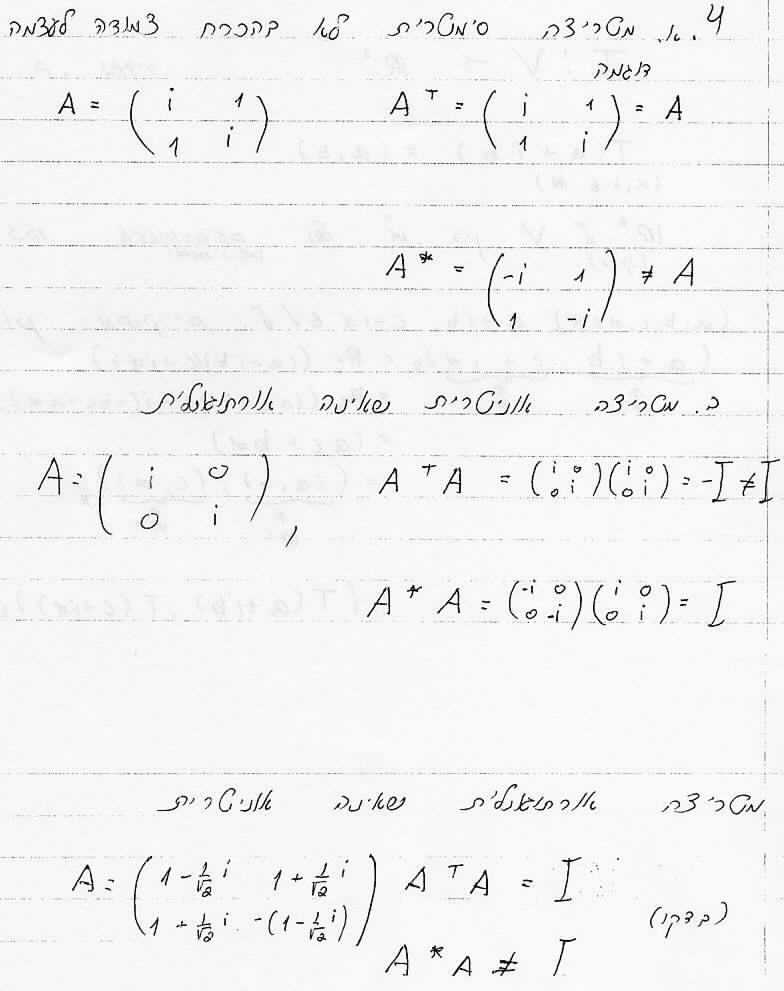 4. א. מטריצה סימטרית לא בהכרח צמודה לעצמה
דוגמה
A = ( i 1 ; 1 i ) A^T = ( i 1 ; 1 i ) = A
A* = ( -i 1 ; 1 -i ) ≠ A
ב. מטריצה אוניטרית שאינה אורתוגונלית
A = ( i 0 ; 0 i ) , A^T A = ( i 0 ; 0 i )( i 0 ; 0 i ) = -I ≠ I
A* A = ( -i 0 ; 0 -i )( i 0 ; 0 i ) = I
מטריצה אורתוגונלית שאינה אוניטרית
A = ( 1 - 1/√2 i 1 + 1/√2 i ; 1 + 1/√2 i -(1 - 1/√2 i) ) A^T A = I
(בדקו)
A* A ≠ I